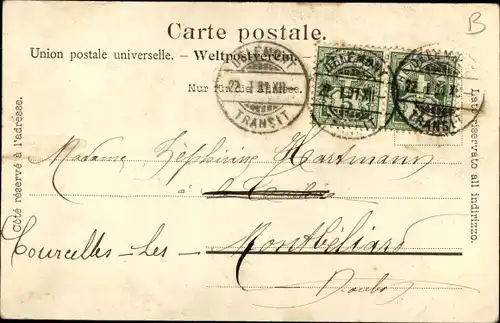 B
Carte postale.
Union postale universelle. – Weltpostverein.
Nur für die Adresse.
Côté réservé à l'adresse.
Lato riservato all indirizzo.
DELÉMONT
TRANSIT
DELÉMONT
TRANSIT
5
Madame Zéphirine Hartmann
à la
Courcelles-les-Montbéliard
Doubs